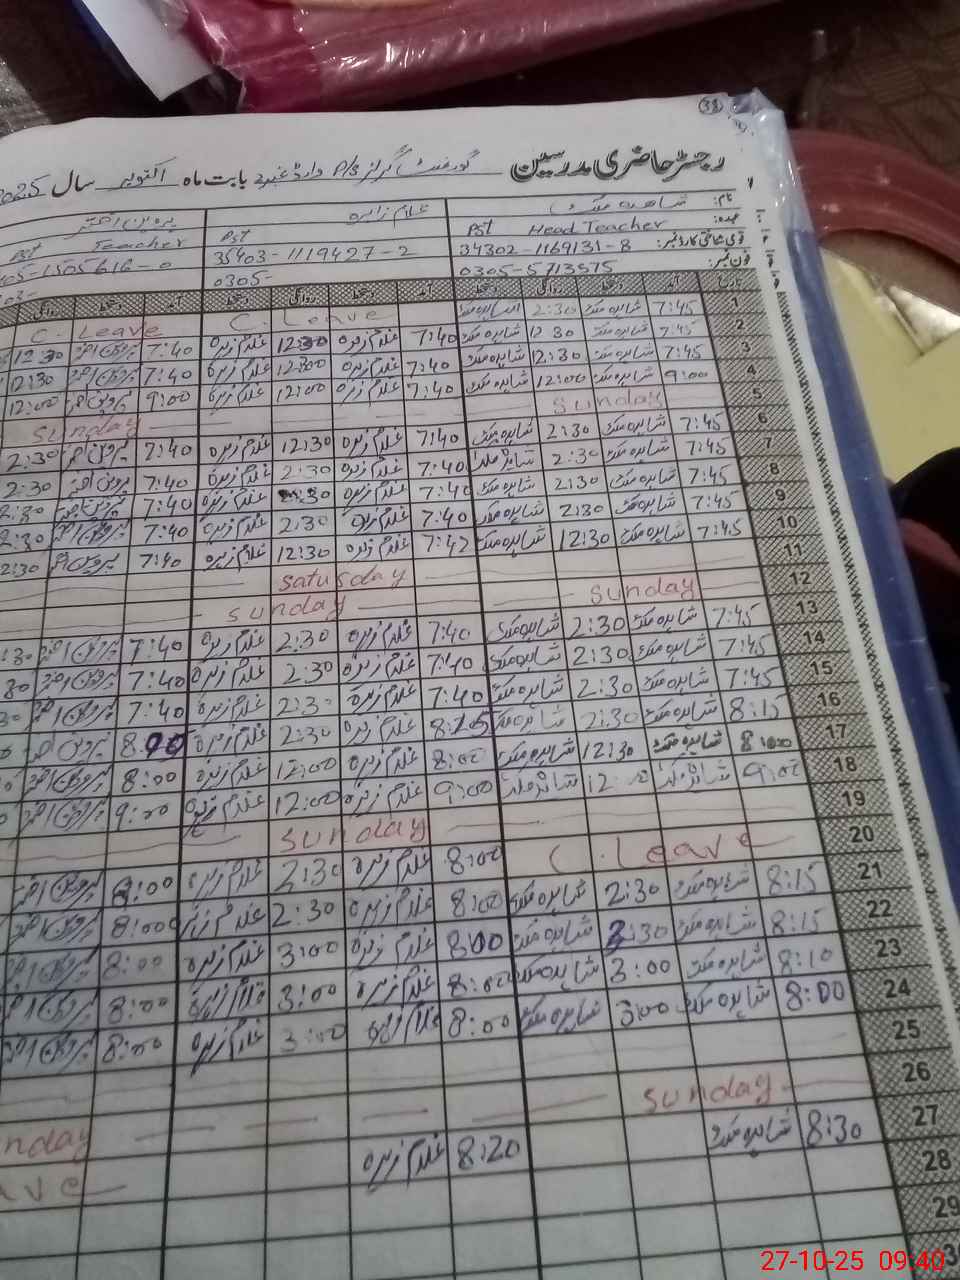 38
رجسٹر حاضری مدرسین گورنمنٹ گرلز P/S وارڈ نمبر بابت ماہ اکتوبر سال 2025
نام: شاھدہ ملک غلام زہرہ پروین اختر
عہدہ: PST Head Teacher PST PST Teacher
قومی شناختی کارڈ نمبر: 34302-1169131-8 35403-1119427-2 1505616-0
فون نمبر: 0305-5713575 0305-
تاریخ آمد دستخط روانگی دستخط آمد دستخط روانگی دستخط آمد دستخط روانگی
1 7:45 شاہدہ ملک 2:30 شاہدہ ملک C. Leave C. Leave
2 7:45 شاہدہ ملک 12:30 شاہدہ ملک 7:40 غلام زہرہ 12:30 غلام زہرہ 7:40 پروین اختر 12:30
3 7:45 شاہدہ ملک 12:30 شاہدہ ملک 7:40 غلام زہرہ 12:00 غلام زہرہ 7:40 پروین اختر 12:30
4 9:00 شاہدہ ملک 12:00 شاہدہ ملک 7:40 غلام زہرہ 12:00 غلام زہرہ 9:00 پروین اختر 12:00
5 Sunday Sunday
6 7:45 شاہدہ ملک 2:30 شاہدہ ملک 7:40 غلام زہرہ 12:30 غلام زہرہ 7:40 پروین اختر 2:30
7 7:45 شاہدہ ملک 2:30 شاہدہ ملک 7:40 غلام زہرہ 2:30 غلام زہرہ 7:40 پروین اختر 2:30
8 7:45 شاہدہ ملک 2:30 شاہدہ ملک 7:40 غلام زہرہ غلام زہرہ 7:40 پروین اختر 2:30
9 7:45 شاہدہ ملک 2:30 شاہدہ ملک 7:40 غلام زہرہ 2:30 غلام زہرہ 7:40 پروین اختر 2:30
10 7:45 شاہدہ ملک 12:30 شاہدہ ملک 7:42 غلام زہرہ 12:30 غلام زہرہ 7:40 پروین اختر 2:30
11 Satusday
12 Sunday Sunday
13 7:45 شاہدہ ملک 2:30 شاہدہ ملک 7:40 غلام زہرہ 2:30 غلام زہرہ 7:40 پروین اختر :30
14 7:45 شاہدہ ملک 2:30 شاہدہ ملک 7:40 غلام زہرہ 2:30 غلام زہرہ 7:40 پروین اختر 30
15 7:45 شاہدہ ملک 2:30 شاہدہ ملک 7:40 غلام زہرہ 2:30 غلام زہرہ 7:40 پروین اختر 30
16 8:15 شاہدہ ملک 2:30 شاہدہ ملک 8:25 غلام زہرہ 2:30 غلام زہرہ 8:00 پروین اختر
17 8:00 شاہدہ ملک 12:30 شاہدہ ملک 8:00 غلام زہرہ 12:00 غلام زہرہ 8:00 پروین اختر
18 9:00 شاہدہ ملک 12:00 شاہدہ ملک 9:00 غلام زہرہ 12:00 غلام زہرہ 9:00 پروین اختر
19 Sunday
20 C. Leave 8:00 غلام زہرہ 2:30 غلام زہرہ 8:00 پروین اختر
21 8:15 شاہدہ ملک 2:30 شاہدہ ملک 8:00 غلام زہرہ 2:30 غلام زہرہ 8:00 پروین اختر
22 8:15 شاہدہ ملک 2:30 شاہدہ ملک 8:00 غلام زہرہ 3:00 غلام زہرہ 8:00 پروین اختر
23 8:10 شاہدہ ملک 3:00 شاہدہ ملک 8:00 غلام زہرہ 3:00 غلام زہرہ 8:00 پروین اختر
24 8:00 شاہدہ ملک 3:00 شاہدہ ملک 8:00 غلام زہرہ 3:00 غلام زہرہ 8:00 پروین اختر
25
26 Sunday nday
27 8:30 شاہدہ ملک 8:20 غلام زہرہ ave
28
29
27-10-25 09:40